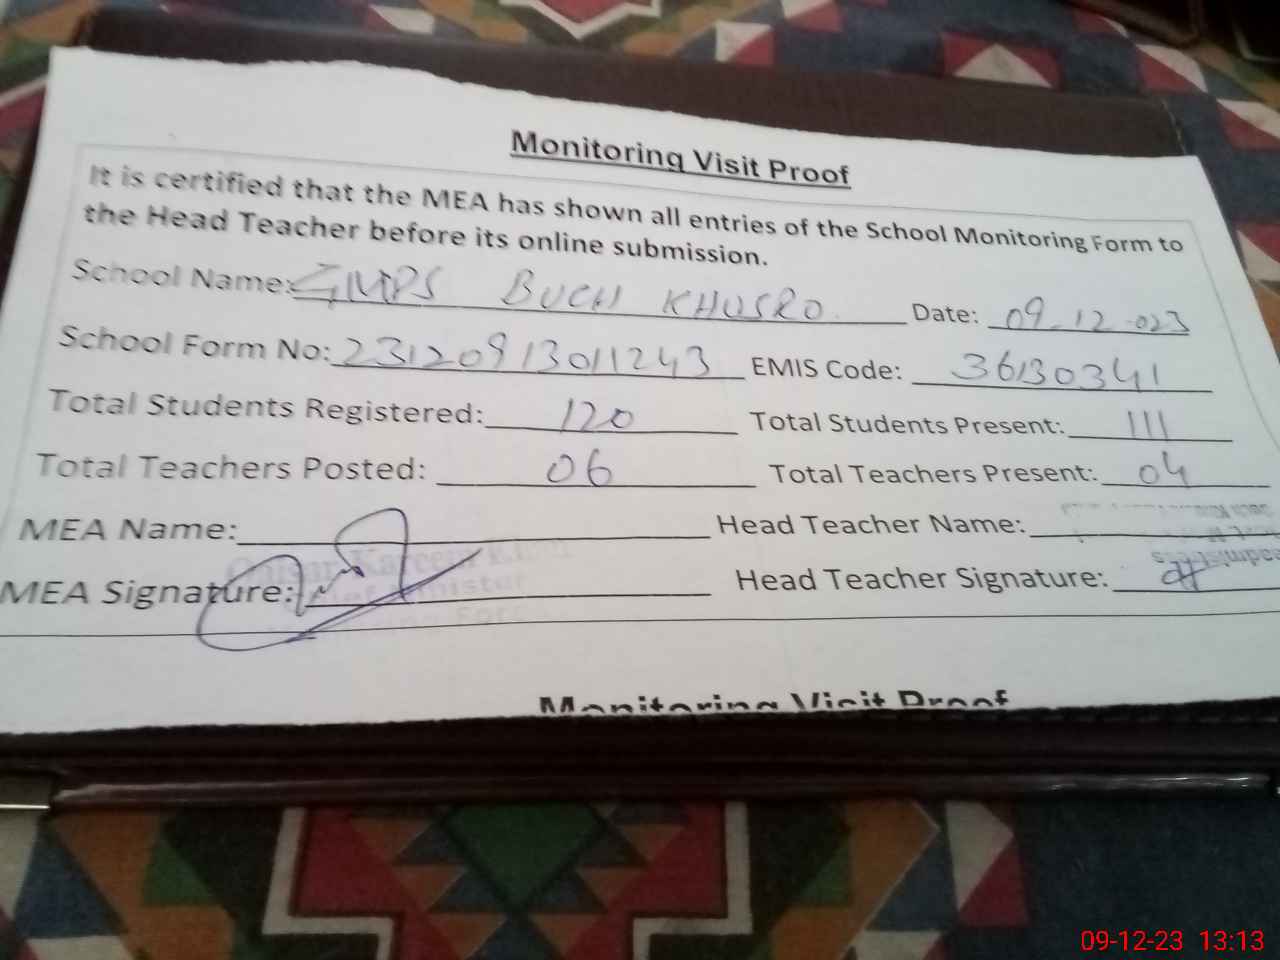 Monitoring Visit Proof
It is certified that the MEA has shown all entries of the School Monitoring Form to
the Head Teacher before its online submission.
School Name: GMPS BUCH KHUSRO Date: 09-12-023
School Form No: 23120913011243 EMIS Code: 36130341
Total Students Registered: 120 Total Students Present: 111
Total Teachers Posted: 06 Total Teachers Present: 04
MEA Name: Head Teacher Name:
MEA Signature: Head Teacher Signature:
Monitoring Visit Proof
09-12-23 13:13